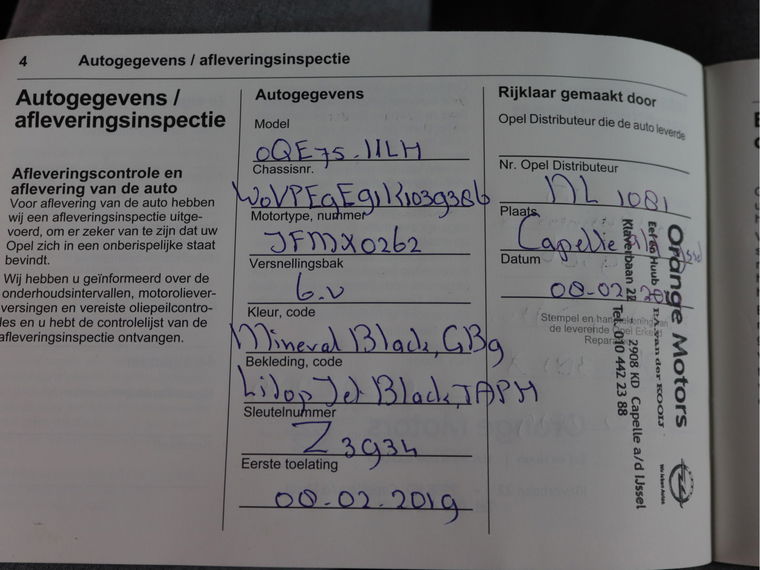 4 Autogegevens / afleveringsinspectie
Autogegevens /
afleveringsinspectie
Afleveringscontrole en
aflevering van de auto
Voor aflevering van de auto hebben
wij een afleveringsinspectie uitge-
voerd, om er zeker van te zijn dat uw
Opel zich in een onberispelijke staat
bevindt.
Wij hebben u geïnformeerd over de
onderhoudsintervallen, motoroliever-
versingen en vereiste oliepeilcontro-
les en u hebt de controlelijst van de
afleveringsinspectie ontvangen.
Autogegevens
Model
0QE75.11LH
Chassisnr.
W0VPEgEg1K1039386
Motortype, nummer
JFMX0262
Versnellingsbak
6.v
Kleur, code
Mineral Black, GBg
Bekleding, code
Jet Black, TAPH
Sleutelnummer
Z3934
Eerste toelating
08.02.2019
Rijklaar gemaakt door
Opel Distributeur die de auto leverde
Nr. Opel Distributeur
NL 1081
Plaats
Capelle
Datum
08-02
Stempel en
de leverende Opel
Orange Motors
Eef en Huub
van der KOOIJ
Klaverbaan 22 2908 KD Capelle a/d IJssel
Tel. 010 442 23 88